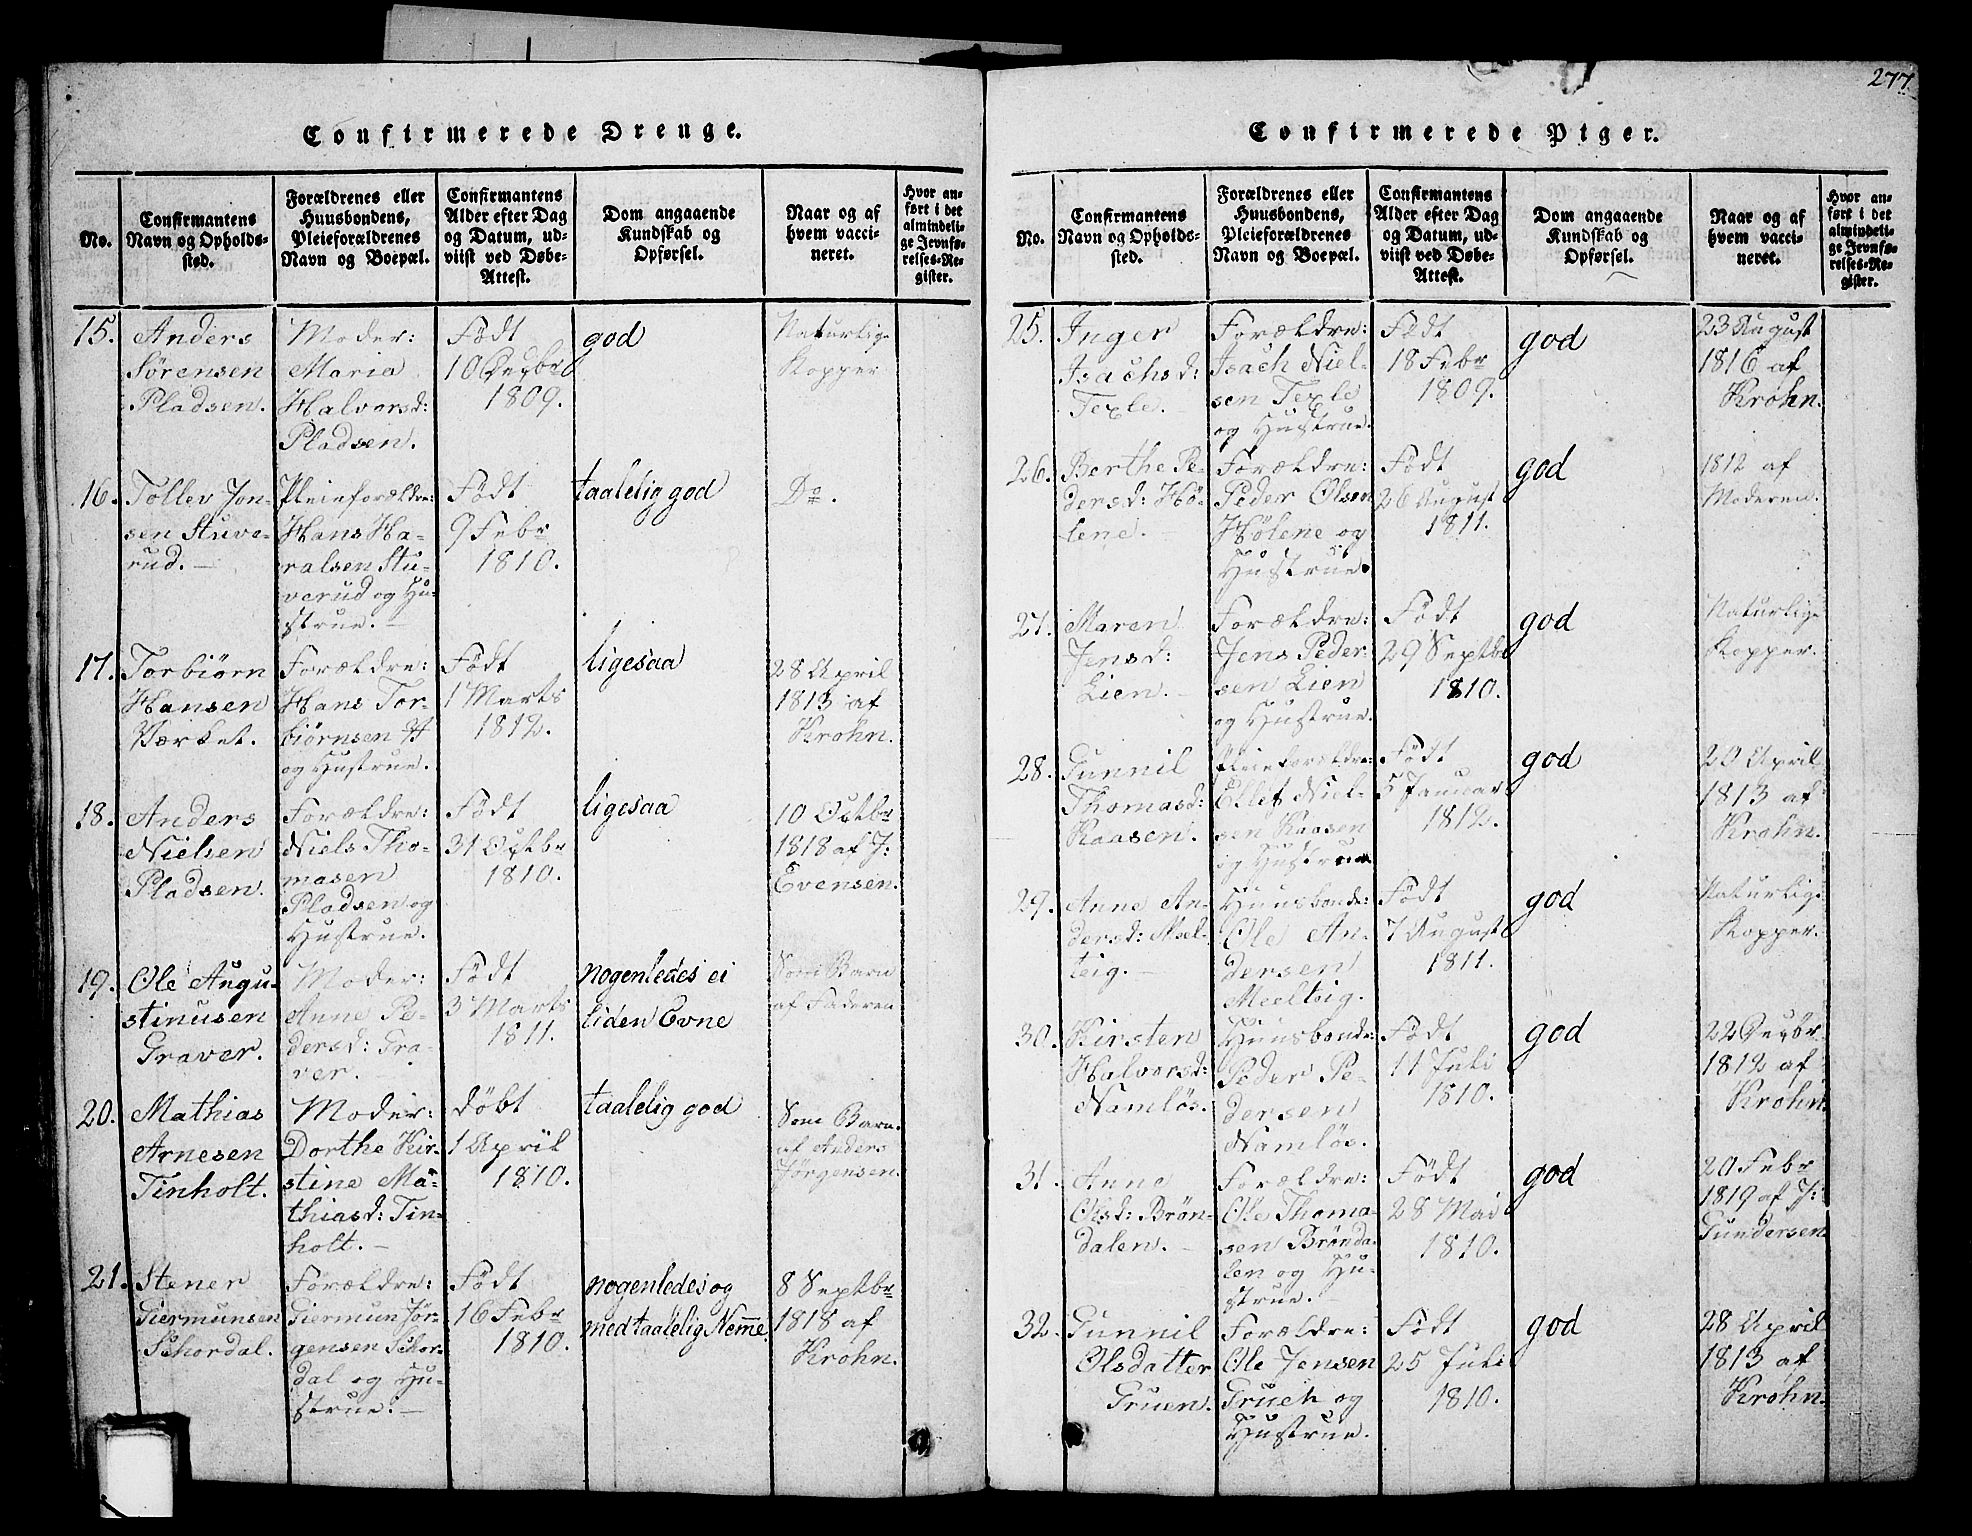 277.
Confirmerede Drenge.
No.
Confirmantens
Navn og Opholds-
sted.
Forældrenes eller
Huusbondens,
Pleieforældrenes
Navn og Boepæl.
Confirmantens
Alder efter Dag
og Datum, ud-
viist ved Døbe-
Attest.
Dom angaaende
Kundskab og
Opførsel.
Naar og af
hvem vacci-
neret.
Hvor an-
ført i det
almindeli-
ge Jevnfø-
relses-Re-
gister.
15.
Anders
Sørensen
Pladsen.
Moder:
Maria
Halvorsd:
Pladsen.
Født
10 Decbr
1809.
god
Naturlige
Kopper
16.
Tollev Jon-
sen Stuve-
rud.-
Pleieforældre:
Hans Ha-
ralsen Stu-
verud og Hu-
strue.-
Født
9 Febr
1810.
taalelig god
Do.
17.
Torbiørn
Hansen
Værket.
Forældre:
Hans Tor-
biørnsen
og Hustrue.
Født
1 Marts
1812.
ligesaa
28 April
1813 af
Krohn.
18.
Anders
Nielsen
Pladsen.
Forældre:
Niels Tho-
masen
Pladsen og
Hustrue.
Født
31 Octbr
1810.
ligesaa
10 Octbr
1818 af J:
Evensen.
19.
Ole Augu-
stinusen
Graver.
Moder:
Anne Pe-
dersd: Gra-
ver.
Født
3 Marts
1811.
nogenledes ei
liden Evne
Som Barn
af Faderen
20.
Mathias
Arnesen
Tinholt.
Moder:
Dorthe Kir-
stine Ma-
thiasd: Tin-
holt.-
døbt
1 April
1810.
taalelig god
Som Barn
af Anders
Jørgensen.
21.
Stener
Giermunsen
Schordal.
Forældre:
Giermun Jør-
gensen Schor-
dal og Hu-
strue.-
Født
16 Febr
1810.
nogenledes og
med taalelig Nemme
8 Septbr
1818 af
Krohn.
Confirmerede Piger.
No.
Confirmantens
Navn og Opholds-
sted.
Forældrenes eller
Huusbondens,
Pleieforældrenes
Navn og Boepæl.
Confirmantens
Alder efter Dag
og Datum, ud-
viist ved Døbe-
Attest.
Dom angaaende
Kundskab og
Opførsel.
Naar og af
hvem vacci-
neret.
Hvor an-
ført i det
almindeli-
ge Jevnfø-
relses-Re-
gister.
25.
Inger
Isachsd:
Texle.
Forældre:
Isach Niel-
sen Texle
og Hustrue.
Født
18 Febr
1809.
god
23 August
1816 af
Krohn.
26.
Berthe Pe-
dersd: Hø-
lene.-
Forældre:
Peder Olsen
Hølene og
Hustrue.
Født
26 August
1811.
god
1812 af
Moderen.
27.
Maren
Jensd:
Lien.-
Forældre:
Jens Peder-
sen Lien
og Hustrue.
Født
29 Septbr
1810.
god
Naturlige
Kopper.
28.
Gunnil
Thomasd:
Kaasen.
Pleieforældre:
Ellef Niel-
sen Kaasen
og Hustrue
Født
5 Januar
1812.
god
20 April
1813 af
Krohn.
29.
Anne An-
dersd: Meel-
teig.-
Huusbonde:
Ole An-
dersen
Meelteig.
Født
7 August
1811.
god
Naturlige
Kopper.
30.
Kirsten
Halvorsd:
Namløs.
Huusbonde:
Peder Pe-
dersen
Namløs.
Født
11 Juli
1810.
god
22 Decbr
1812 af
Krohn.
31.
Anne
Olsd: Brøn-
dalen.-
Forældre:
Ole Thoma-
sen Brønda-
len og Hu-
strue.-
Født
28 Mai
1810.
god
20 Febr
1819 af J:
Gundersen
32.
Gunnil
Olsdatter
Gruen.
Forældre:
Ole Jensen
Grueh og
Hustrue.
Født
25 Juli
1810.
god
28 April
1813 af
Krohn.